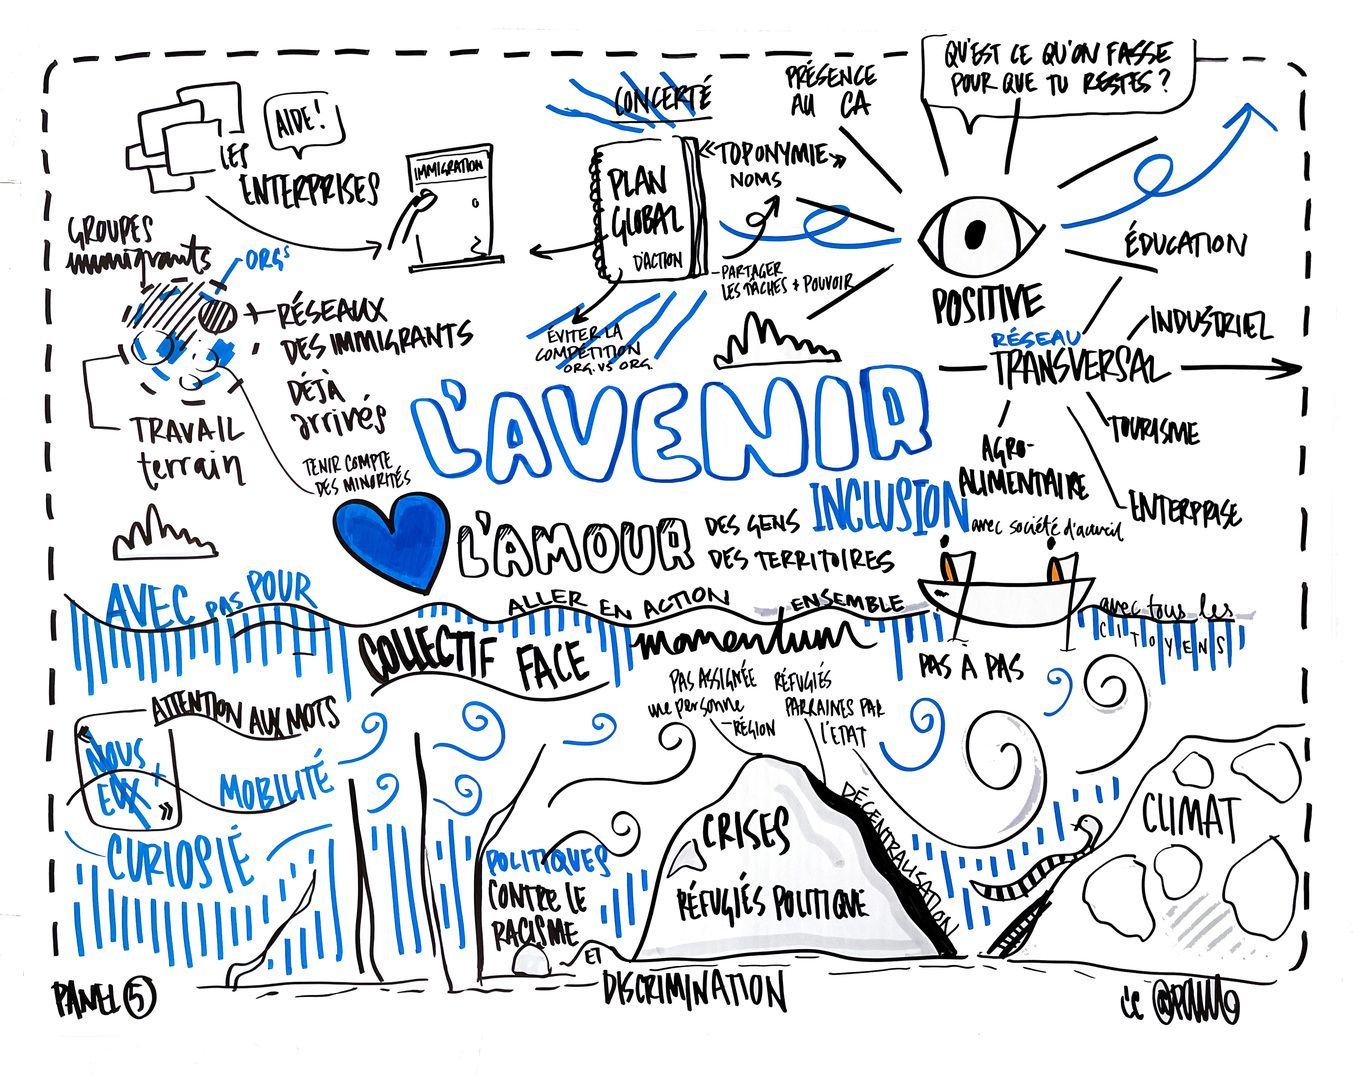 QU'EST CE QU'ON FASSE
POUR QUE TU RESTES ?
PRÉSENCE
AU CA
CONCERTÉ
AIDE !
LES
ENTERPRISES
IMMIGRATION
PLAN
GLOBAL
D'ACTION
« TOPONYMIE »
NOMS
PARTAGER
LES TÂCHES + POUVOIR
ÉVITER LA
COMPÉTITION
ORG. VS ORG.
GROUPES
immigrants
ORGS
RÉSEAUX
DES IMMIGRANTS
DÉJÀ
arrivés
TRAVAIL
terrain
TENIR COMPTE
DES MINORITÉS
POSITIVE
RÉSEAU
TRANSVERSAL
ÉDUCATION
INDUSTRIEL
TOURISME
ENTERPRISE
AGRO-
ALIMENTAIRE
L'AVENIR
L'AMOUR
DES GENS
DES TERRITOIRES
INCLUSION
avec société d'acueil
AVEC PAS POUR
ALLER EN ACTION ENSEMBLE
avec tous les
CITOYENS
COLLECTIF FACE
momentum
PAS À PAS
ATTENTION AUX MOTS
« NOUS
+
EUX »
MOBILITÉ
CURIOSIÉ
PAS ASSIGNÉE
une personne
RÉGION
RÉFUGIÉS
PARRAINES PAR
L'ETAT
POLITIQUES
CONTRE LE
RACISME
ET
DISCRIMINATION
CRISES
RÉFUGIÉS POLITIQUE
DÉCENTRALISATION
CLIMAT
PANEL 5